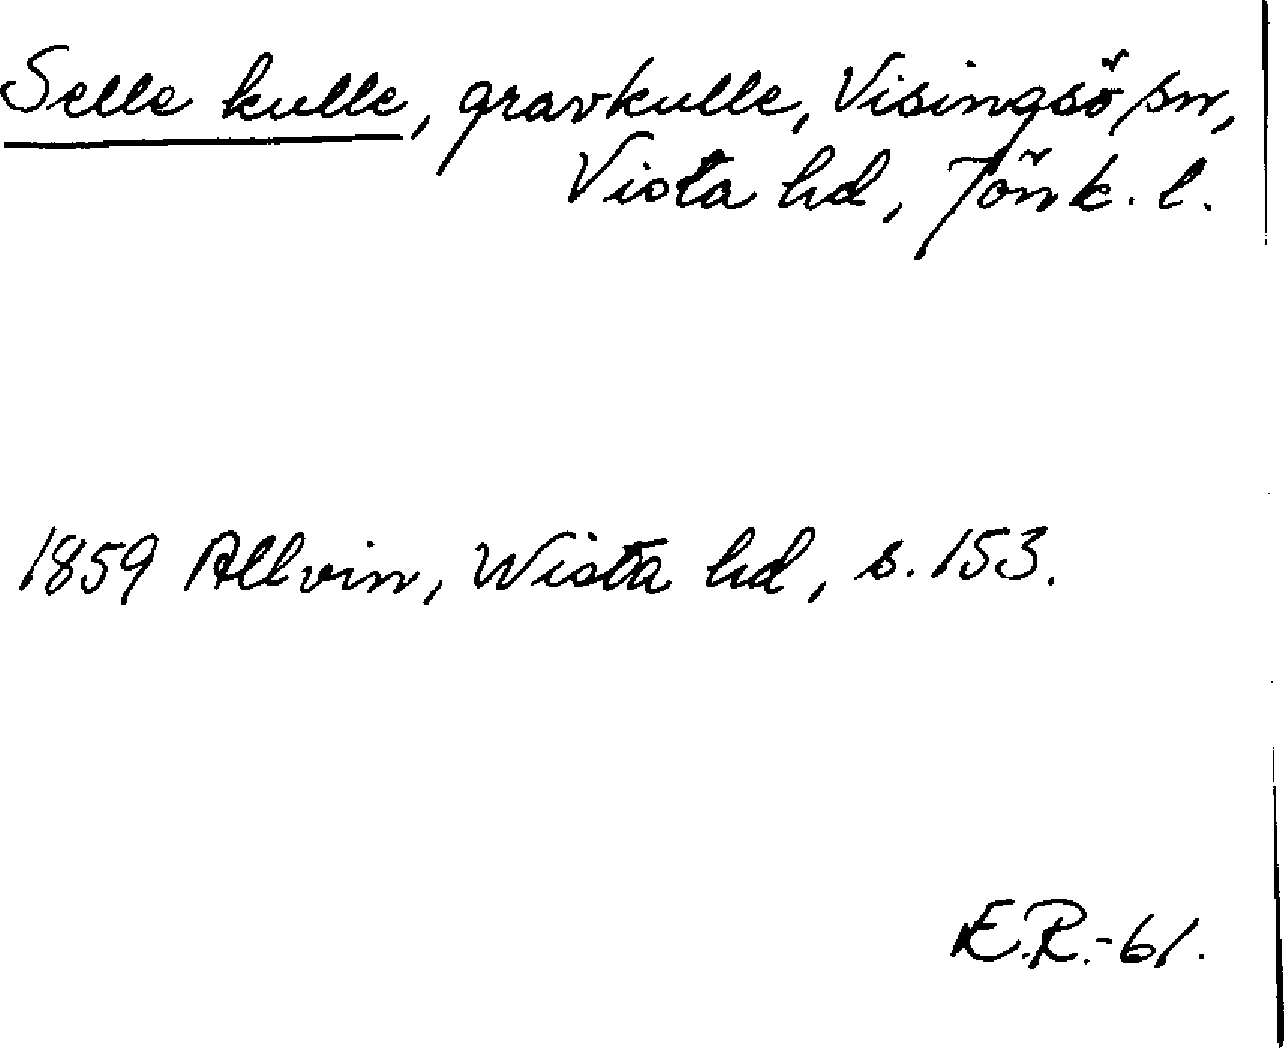 Selle kulle, gravkulle, Visingsö sn,
Vista hd, Jönk. l.
1859 Allvin, Wista hd, s. 153.
E.R.-61.